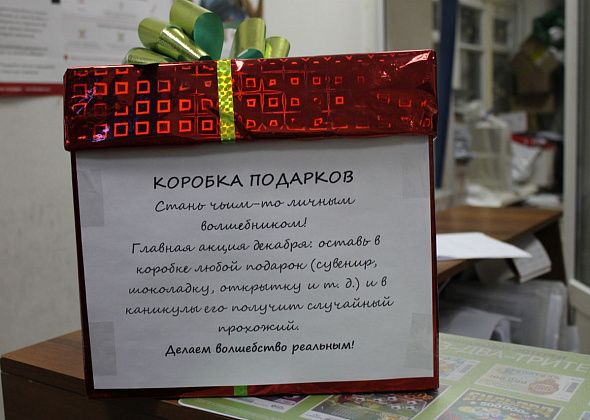 КОРОБКА ПОДАРКОВ
Стань чьим-то личным
волшебником!
Главная акция декабря: оставь в
коробке любой подарок (сувенир,
шоколадку, открытку и т. д.) и в
каникулы его получит случайный
прохожий.
Делаем волшебство реальным!